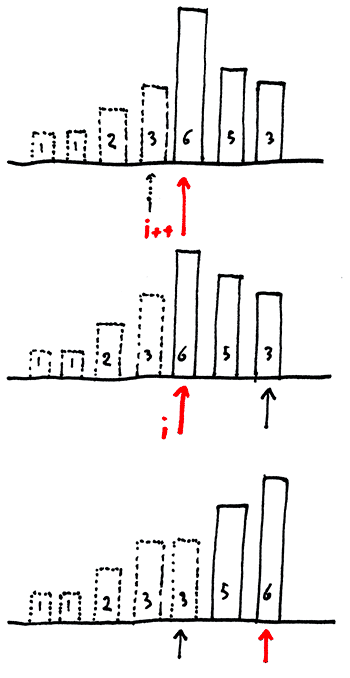 1 1 2 3 6 5 3
i++
1 1 2 3 6 5 3
i
1 1 2 3 3 5 6